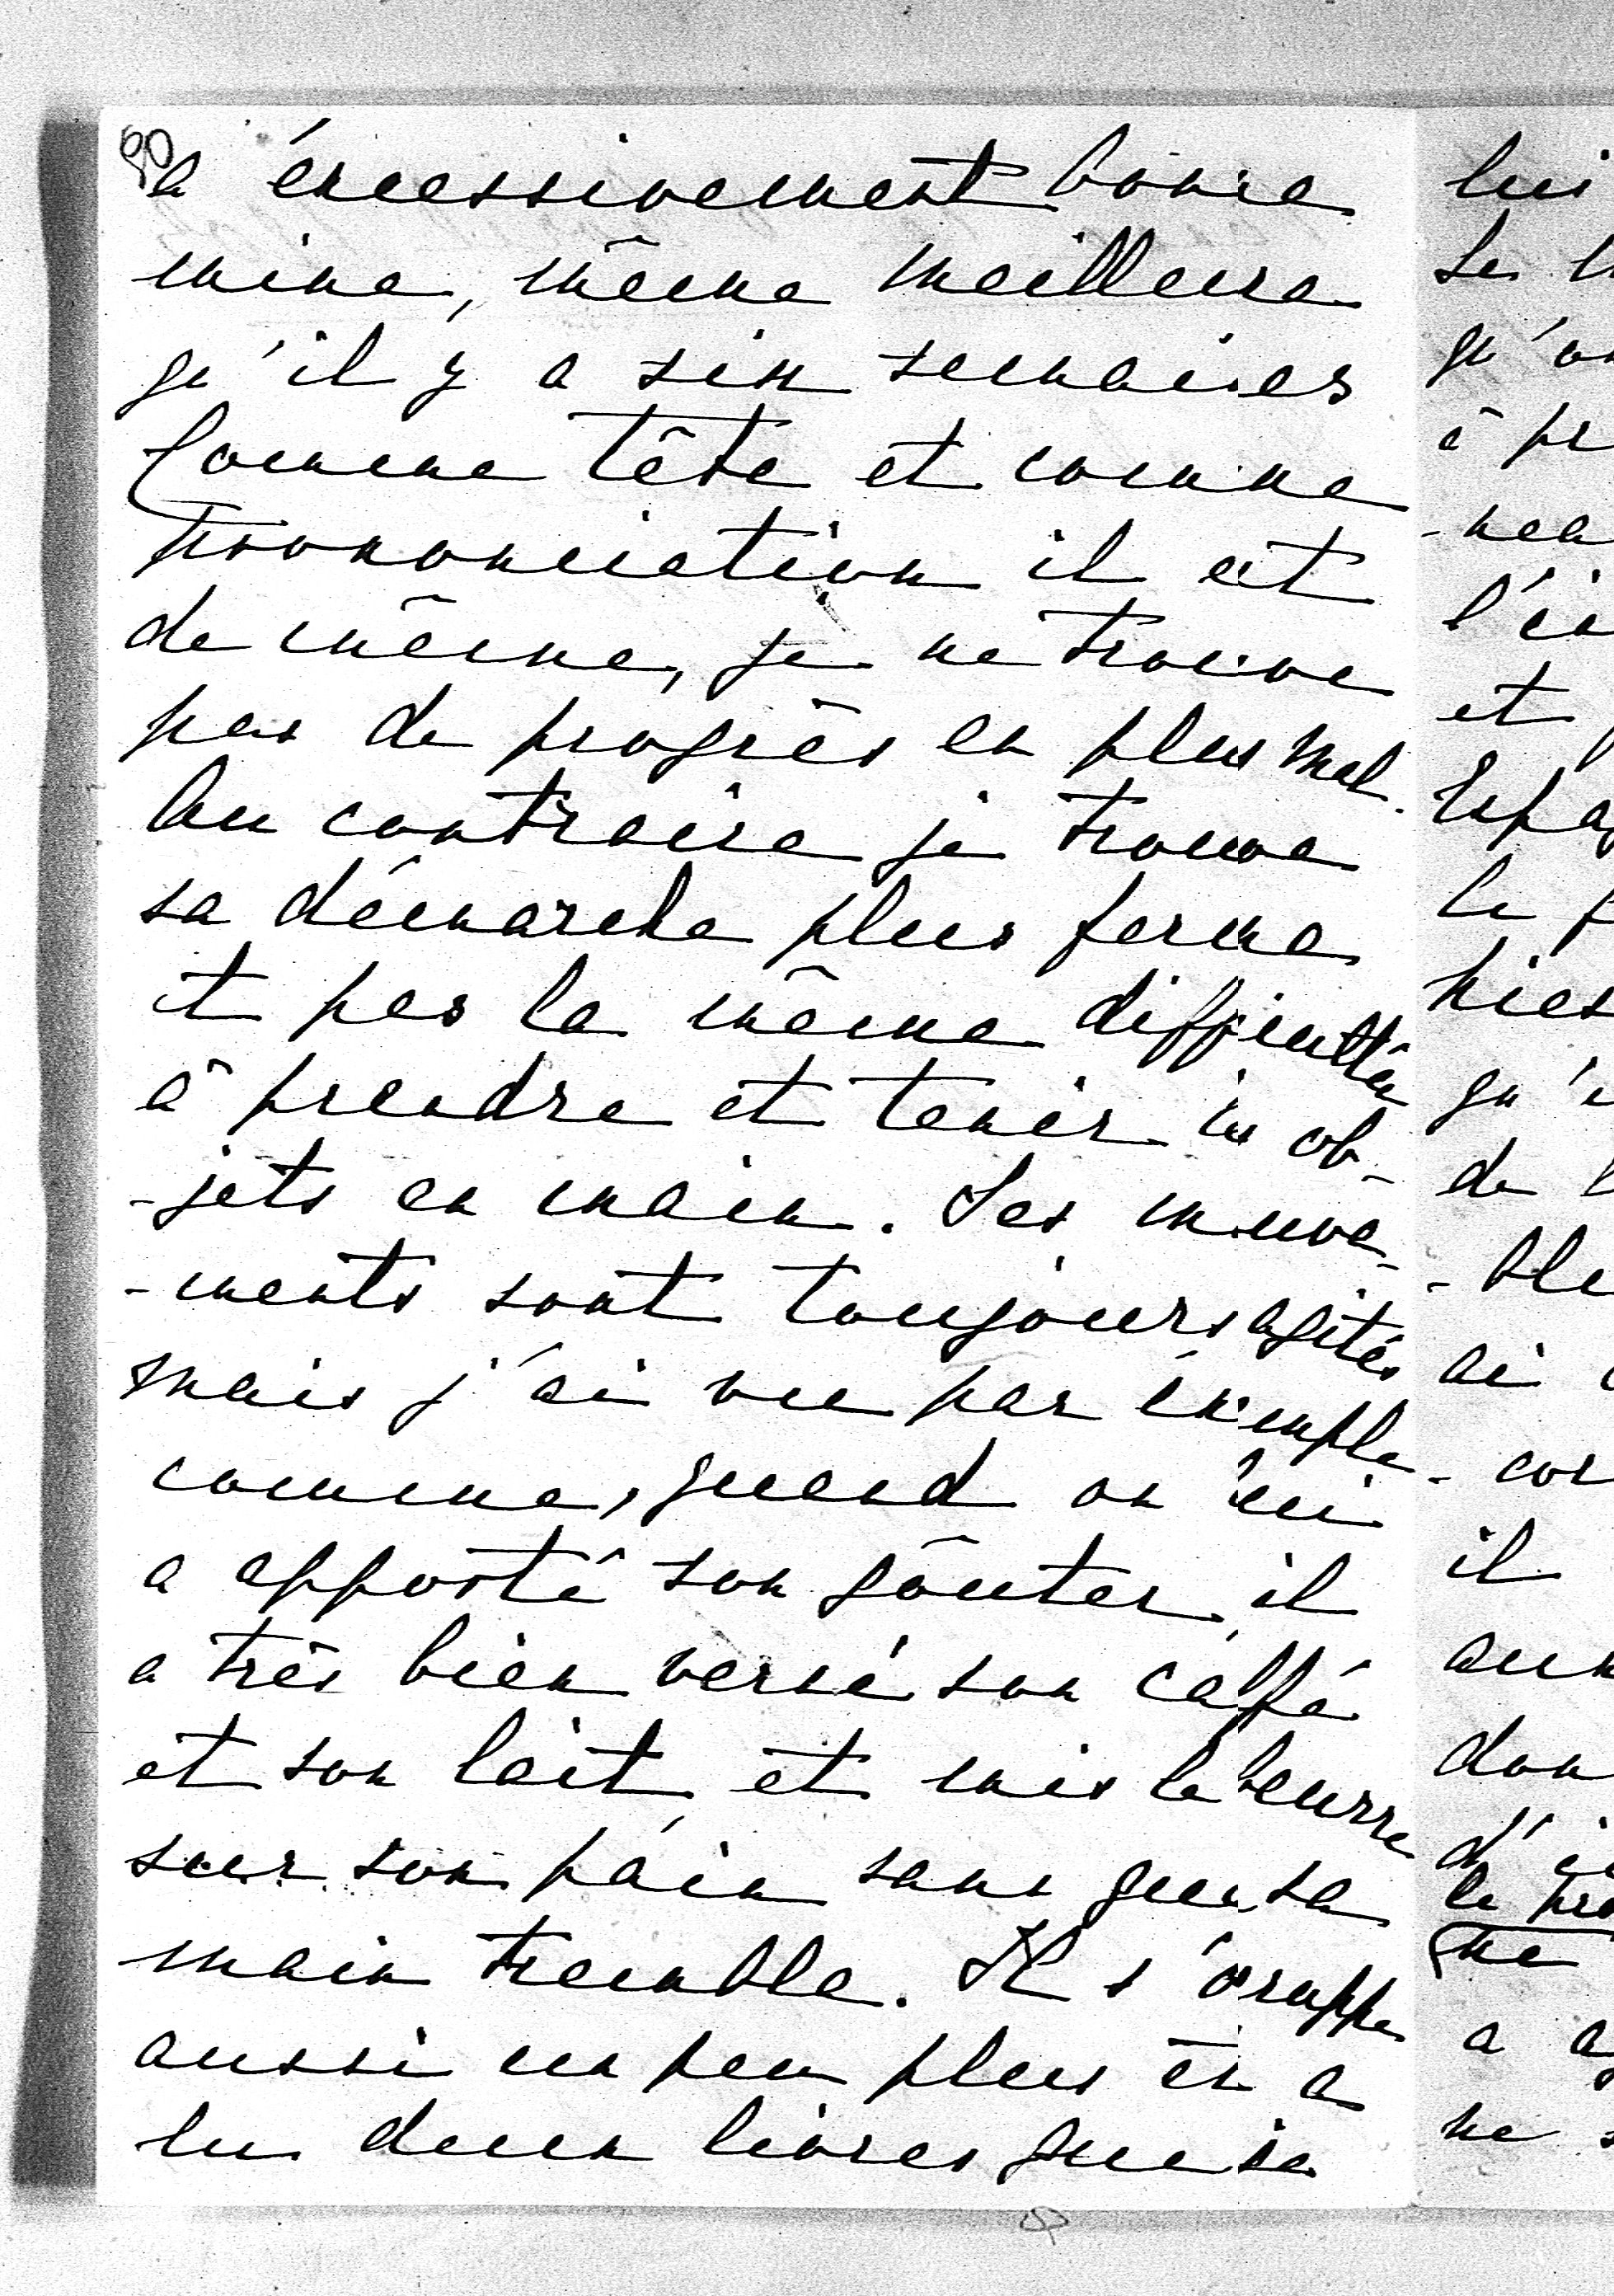 90
a éxcessivement bonne
mine, même meilleure
qu'il y a six semaines
Comme tête et comme
prononciation il est
de même, je ne trouve
pas de progrès en plus mal.
Au contraire je trouve
sa démarche plus ferme
et pas la même difficulté
à prendre et tenir les ob-
-jets en main. Ses mouve-
-ments sont toujours agités
mais j'ai vu par éxemple
comme, quand on lui
a apporté son goûter, il
a très bien versé son caffé
et son lait, et mis le beurre
sur son pain sans que sa
main tremble. Il s'occuppe
aussi un peu plus et a
lu deux livres que je
lui
qu'on
et
de
ai
il
ne
a
ne